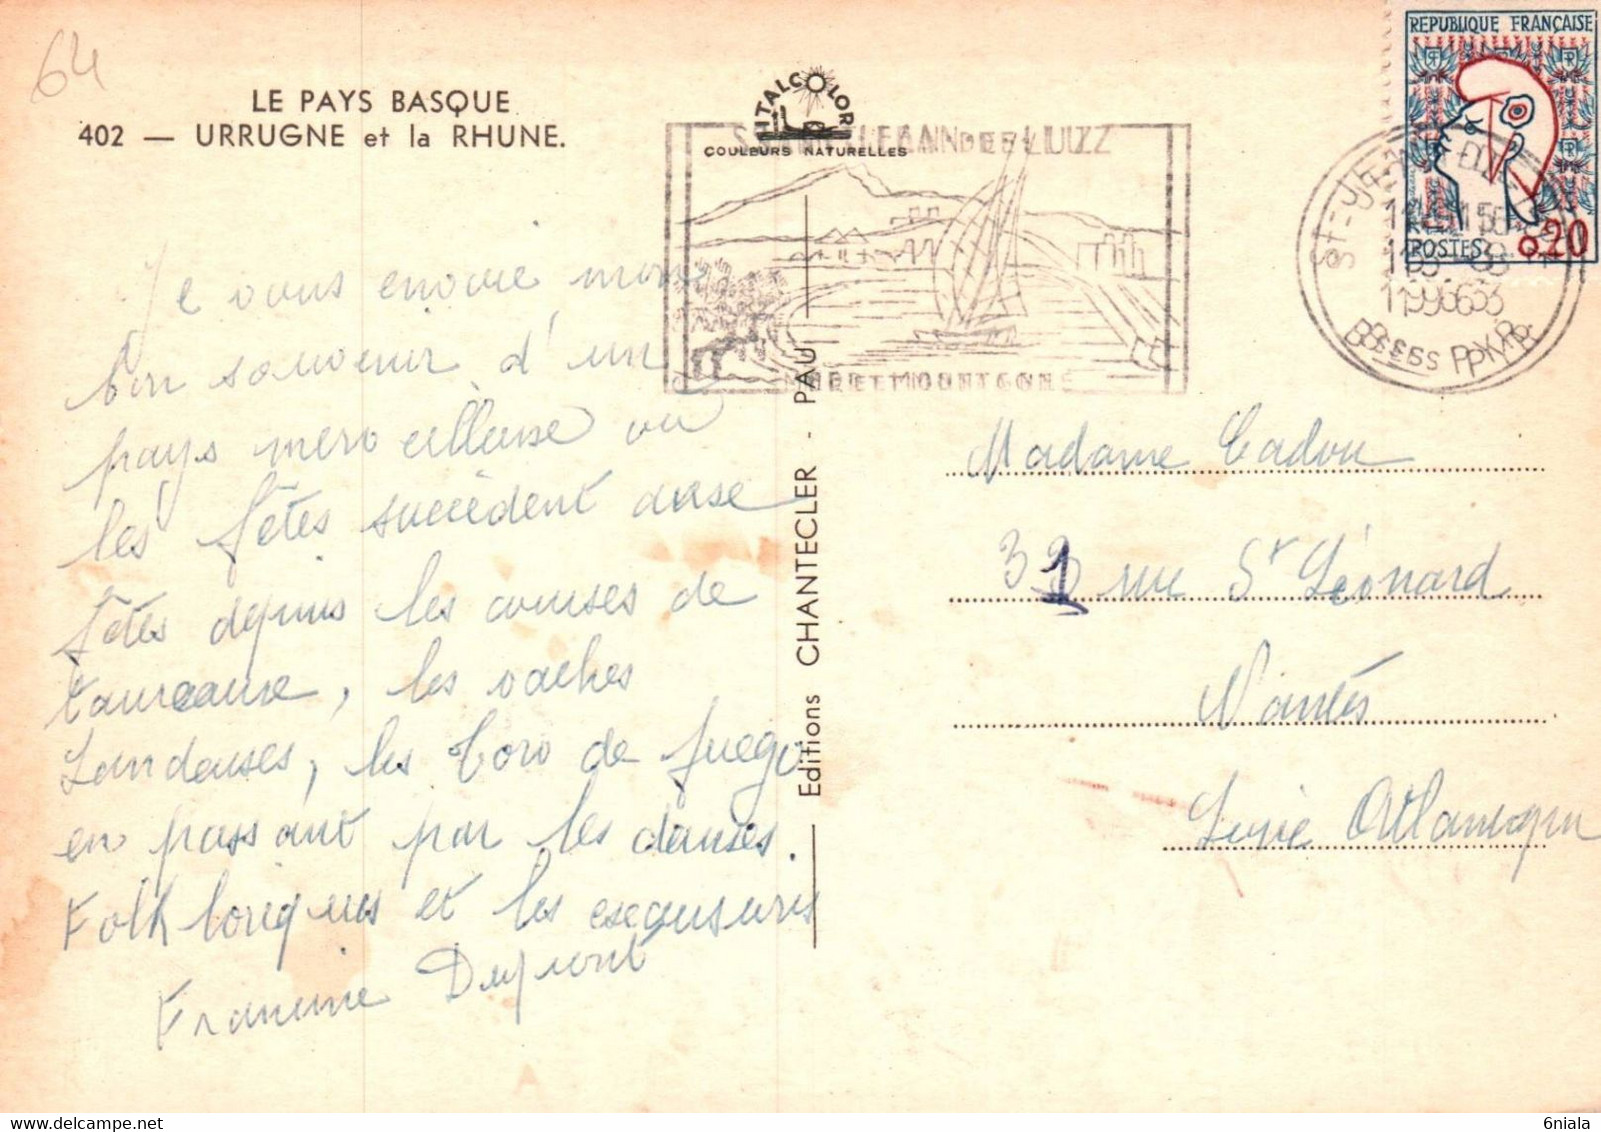 64
LE PAYS BASQUE
402 — URRUGNE et la RHUNE.
ITALCOLOR
COULEURS NATURELLES
REPUBLIQUE FRANÇAISE
POSTES
0,20
MER ET MONTAGNE
Je vous envoie mon
bon souvenir d'un
pays merveilleuse ou
les fêtes succèdent
fêtes depuis les courses de
taureaux, les vaches
Landaises, les toro de fuego
en passant par les danses.
Folkloriques et les
Francine Dupont
Editions CHANTECLER - PAU
Madame Cadou
31 rue St Léonard
Nantes
Loire Atlantique
6niala